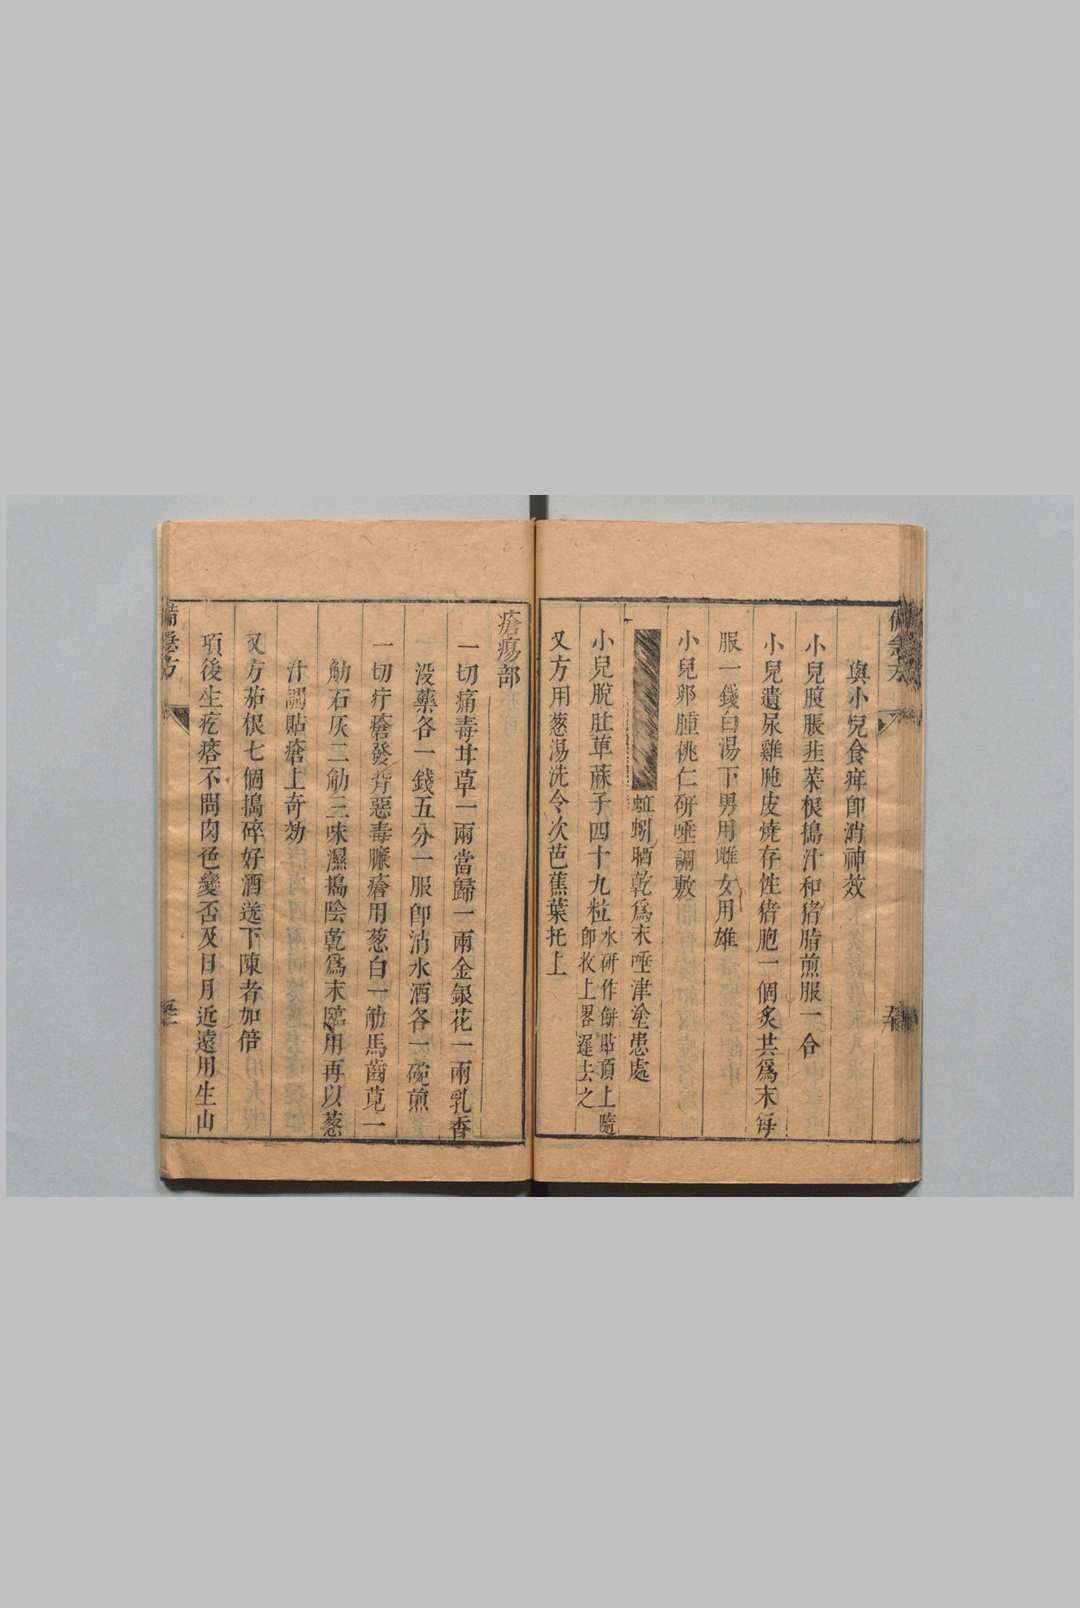 與小兒食痒即消神效
小兒腹脹韭菜根搗汁和猪脂煎服一合
小兒遺尿雞肫皮燒存性猪胞一個炙共爲末每
服一錢白湯下男用雌女用雄
小兒卵腫桃仁研唾調敷
蚯蚓晒乾爲末唾津塗患處
小兒脫肚萆蔴子四十九粒水研作餅貼頂上隨即收上畧遲去之
又方用葱湯洗令次芭蕉葉托上
瘡瘍部
一切癰毒甘草一兩當歸一兩金銀花一兩乳香
没藥各一錢五分一服即消水酒各一碗煎
一切疔瘡發背惡毒臁瘡用葱白一觔馬齒莧一
觔石灰二觔三味濕搗陰乾爲末臨用再以葱
汁調貼瘡上奇効
又方茄根七個搗碎好酒送下陳者加倍
項後生疙瘩不問肉色變否及日月近遠用生山
備急方